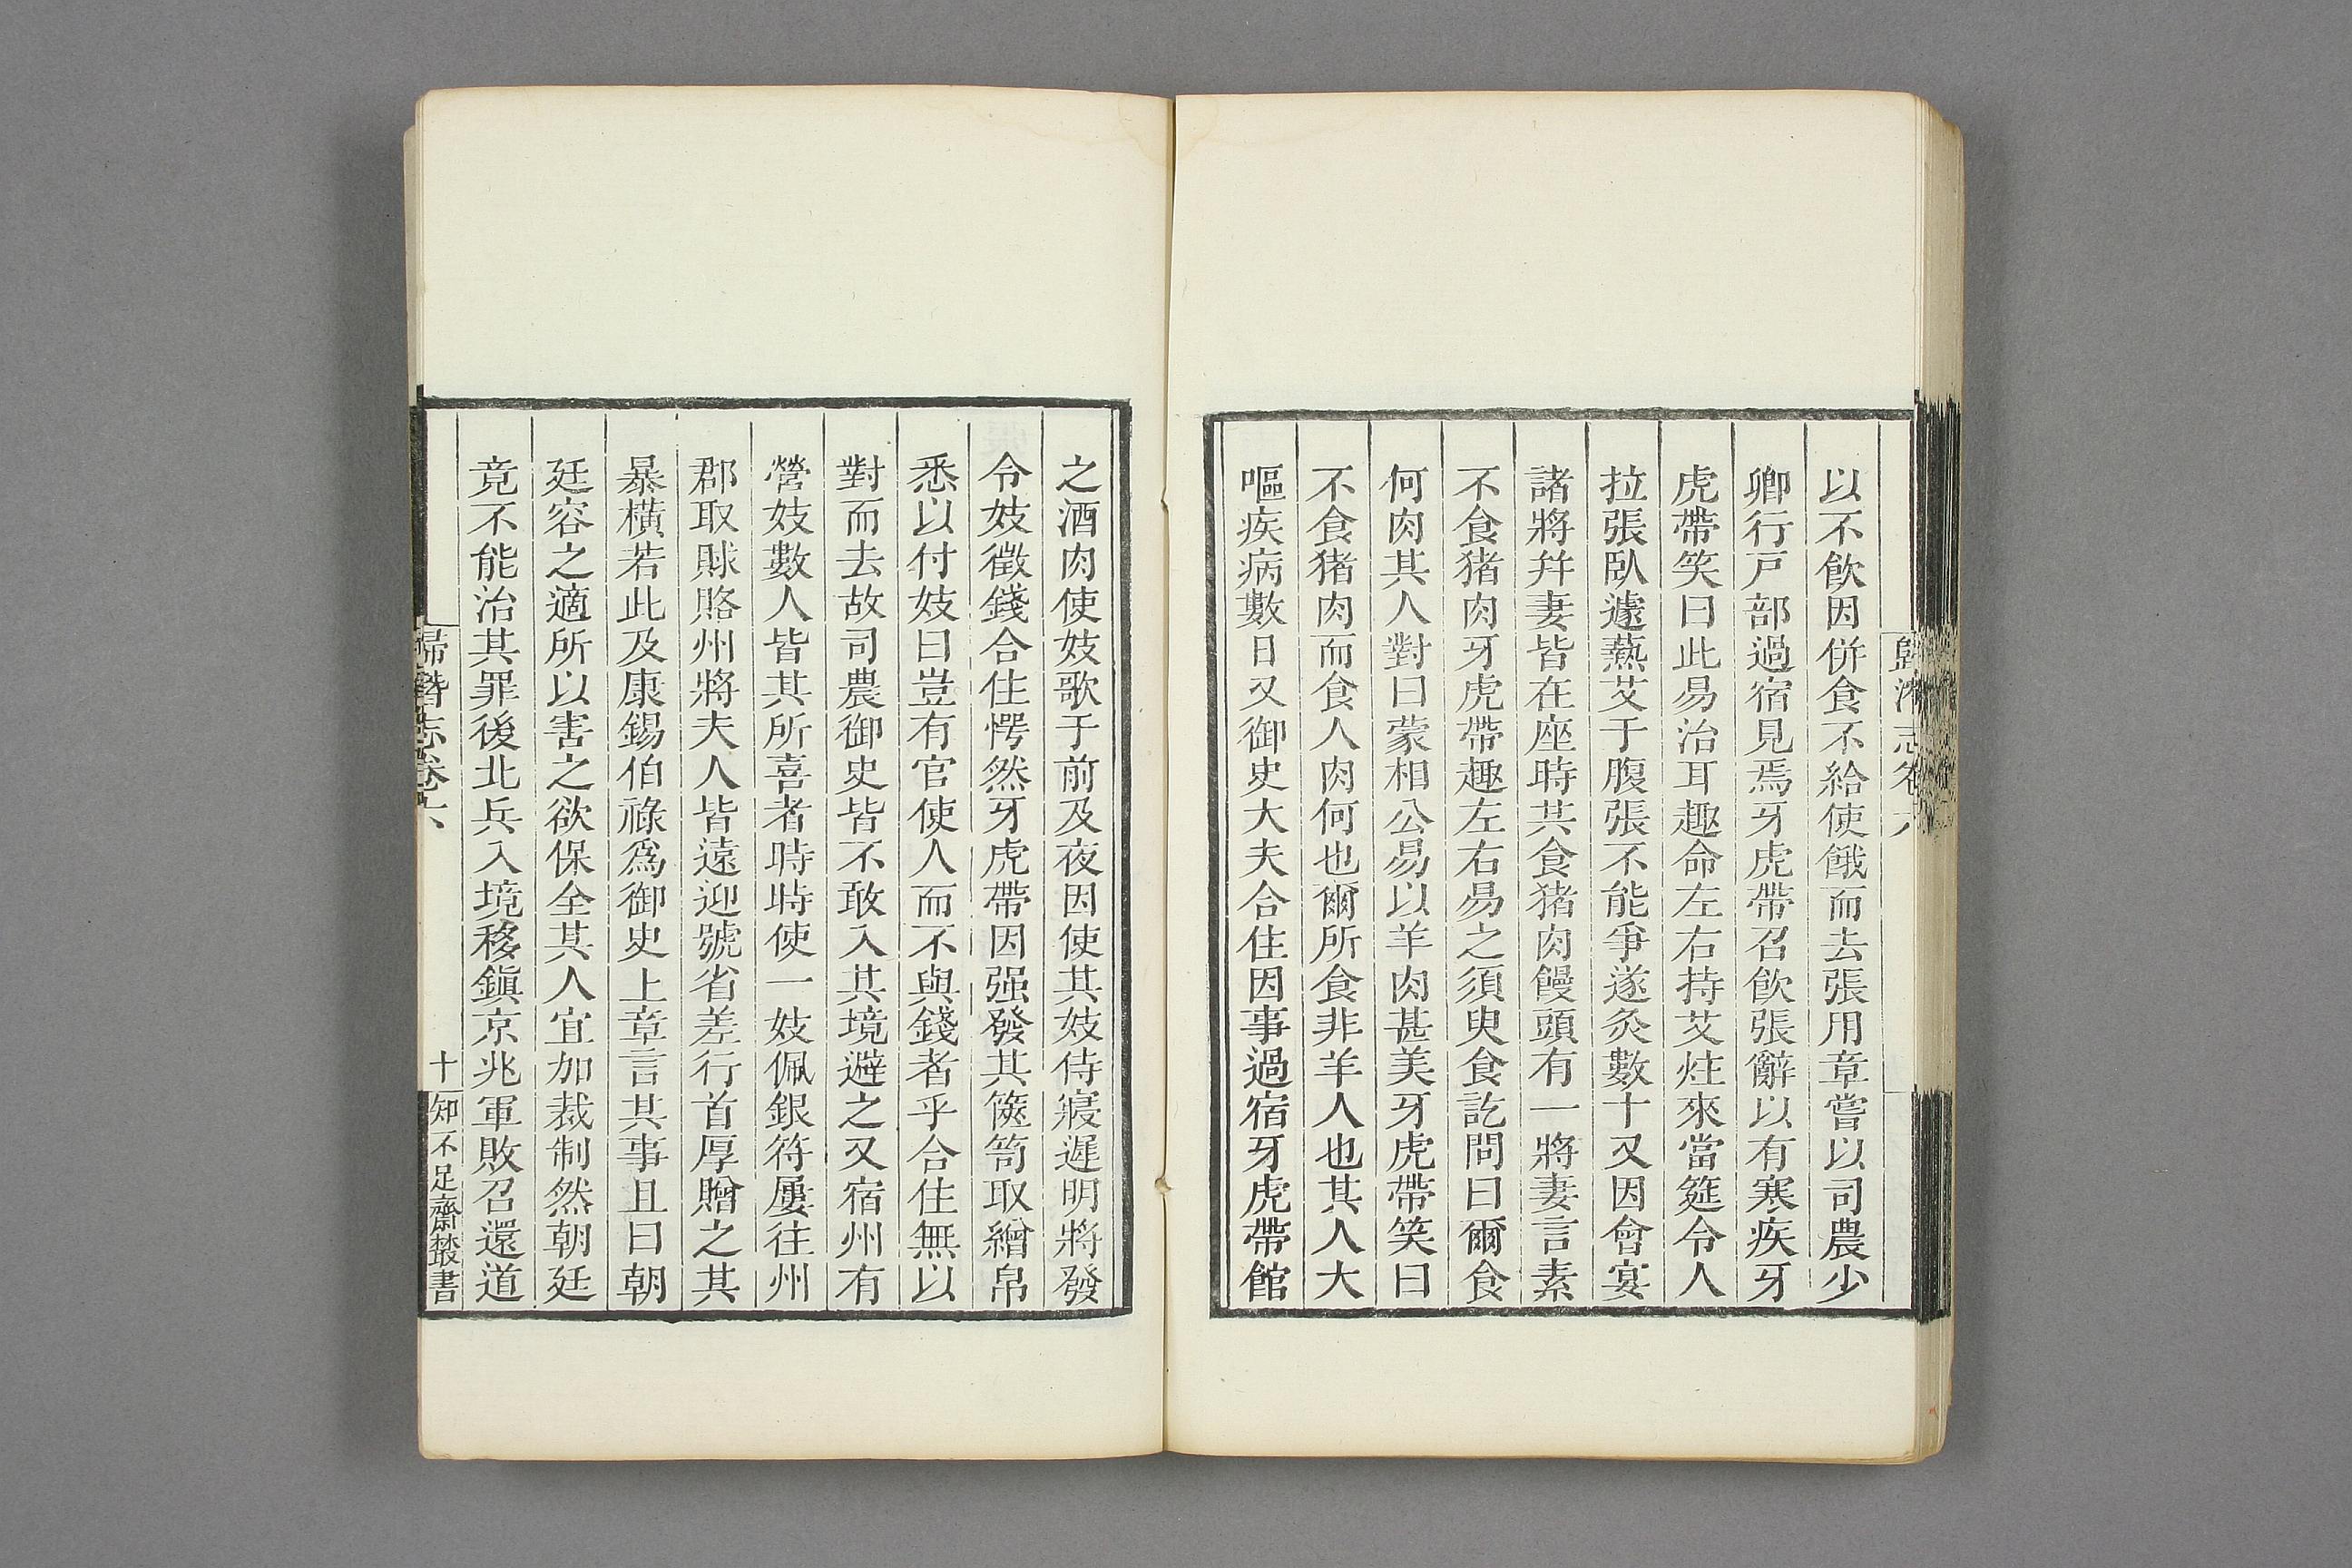 歸潛志卷六
以不飮因併食不給使餓而去張用章嘗以司農少
卿行戸部過宿見焉牙虎帶召飮張辭以有寒疾牙
虎帶笑曰此易治耳趣命左右持艾炷來當筵令人
拉張臥遽爇艾于腹張不能爭遂灸數十又因會宴
諸將幷妻皆在座時共食猪肉饅頭有一將妻言素
不食猪肉牙虎帶趣左右易之須臾食訖問曰爾食
何肉其人對曰蒙相公易以羊肉甚美牙虎帶笑曰
不食猪肉而食人肉何也爾所食非羊人也其人大
嘔疾病數日又御史大夫合住因事過宿牙虎帶館
之酒肉使妓歌于前及夜因使其妓侍寢遲明將發
令妓徵錢合住愕然牙虎帶因强發其篋笥取繒帛
悉以付妓曰豈有官使人而不與錢者乎合住無以
對而去故司農御史皆不敢入其境避之又宿州有
營妓數人皆其所喜者時時使一妓佩銀符屢往州
郡取賕賂州將夫人皆遠迎號省差行首厚贈之其
暴橫若此及康錫伯祿爲御史上章言其事且曰朝
廷容之適所以害之欲保全其人宜加裁制然朝廷
竟不能治其罪後北兵入境移鎭京兆軍敗召還道
歸潛志卷六
十
知不足齋叢書